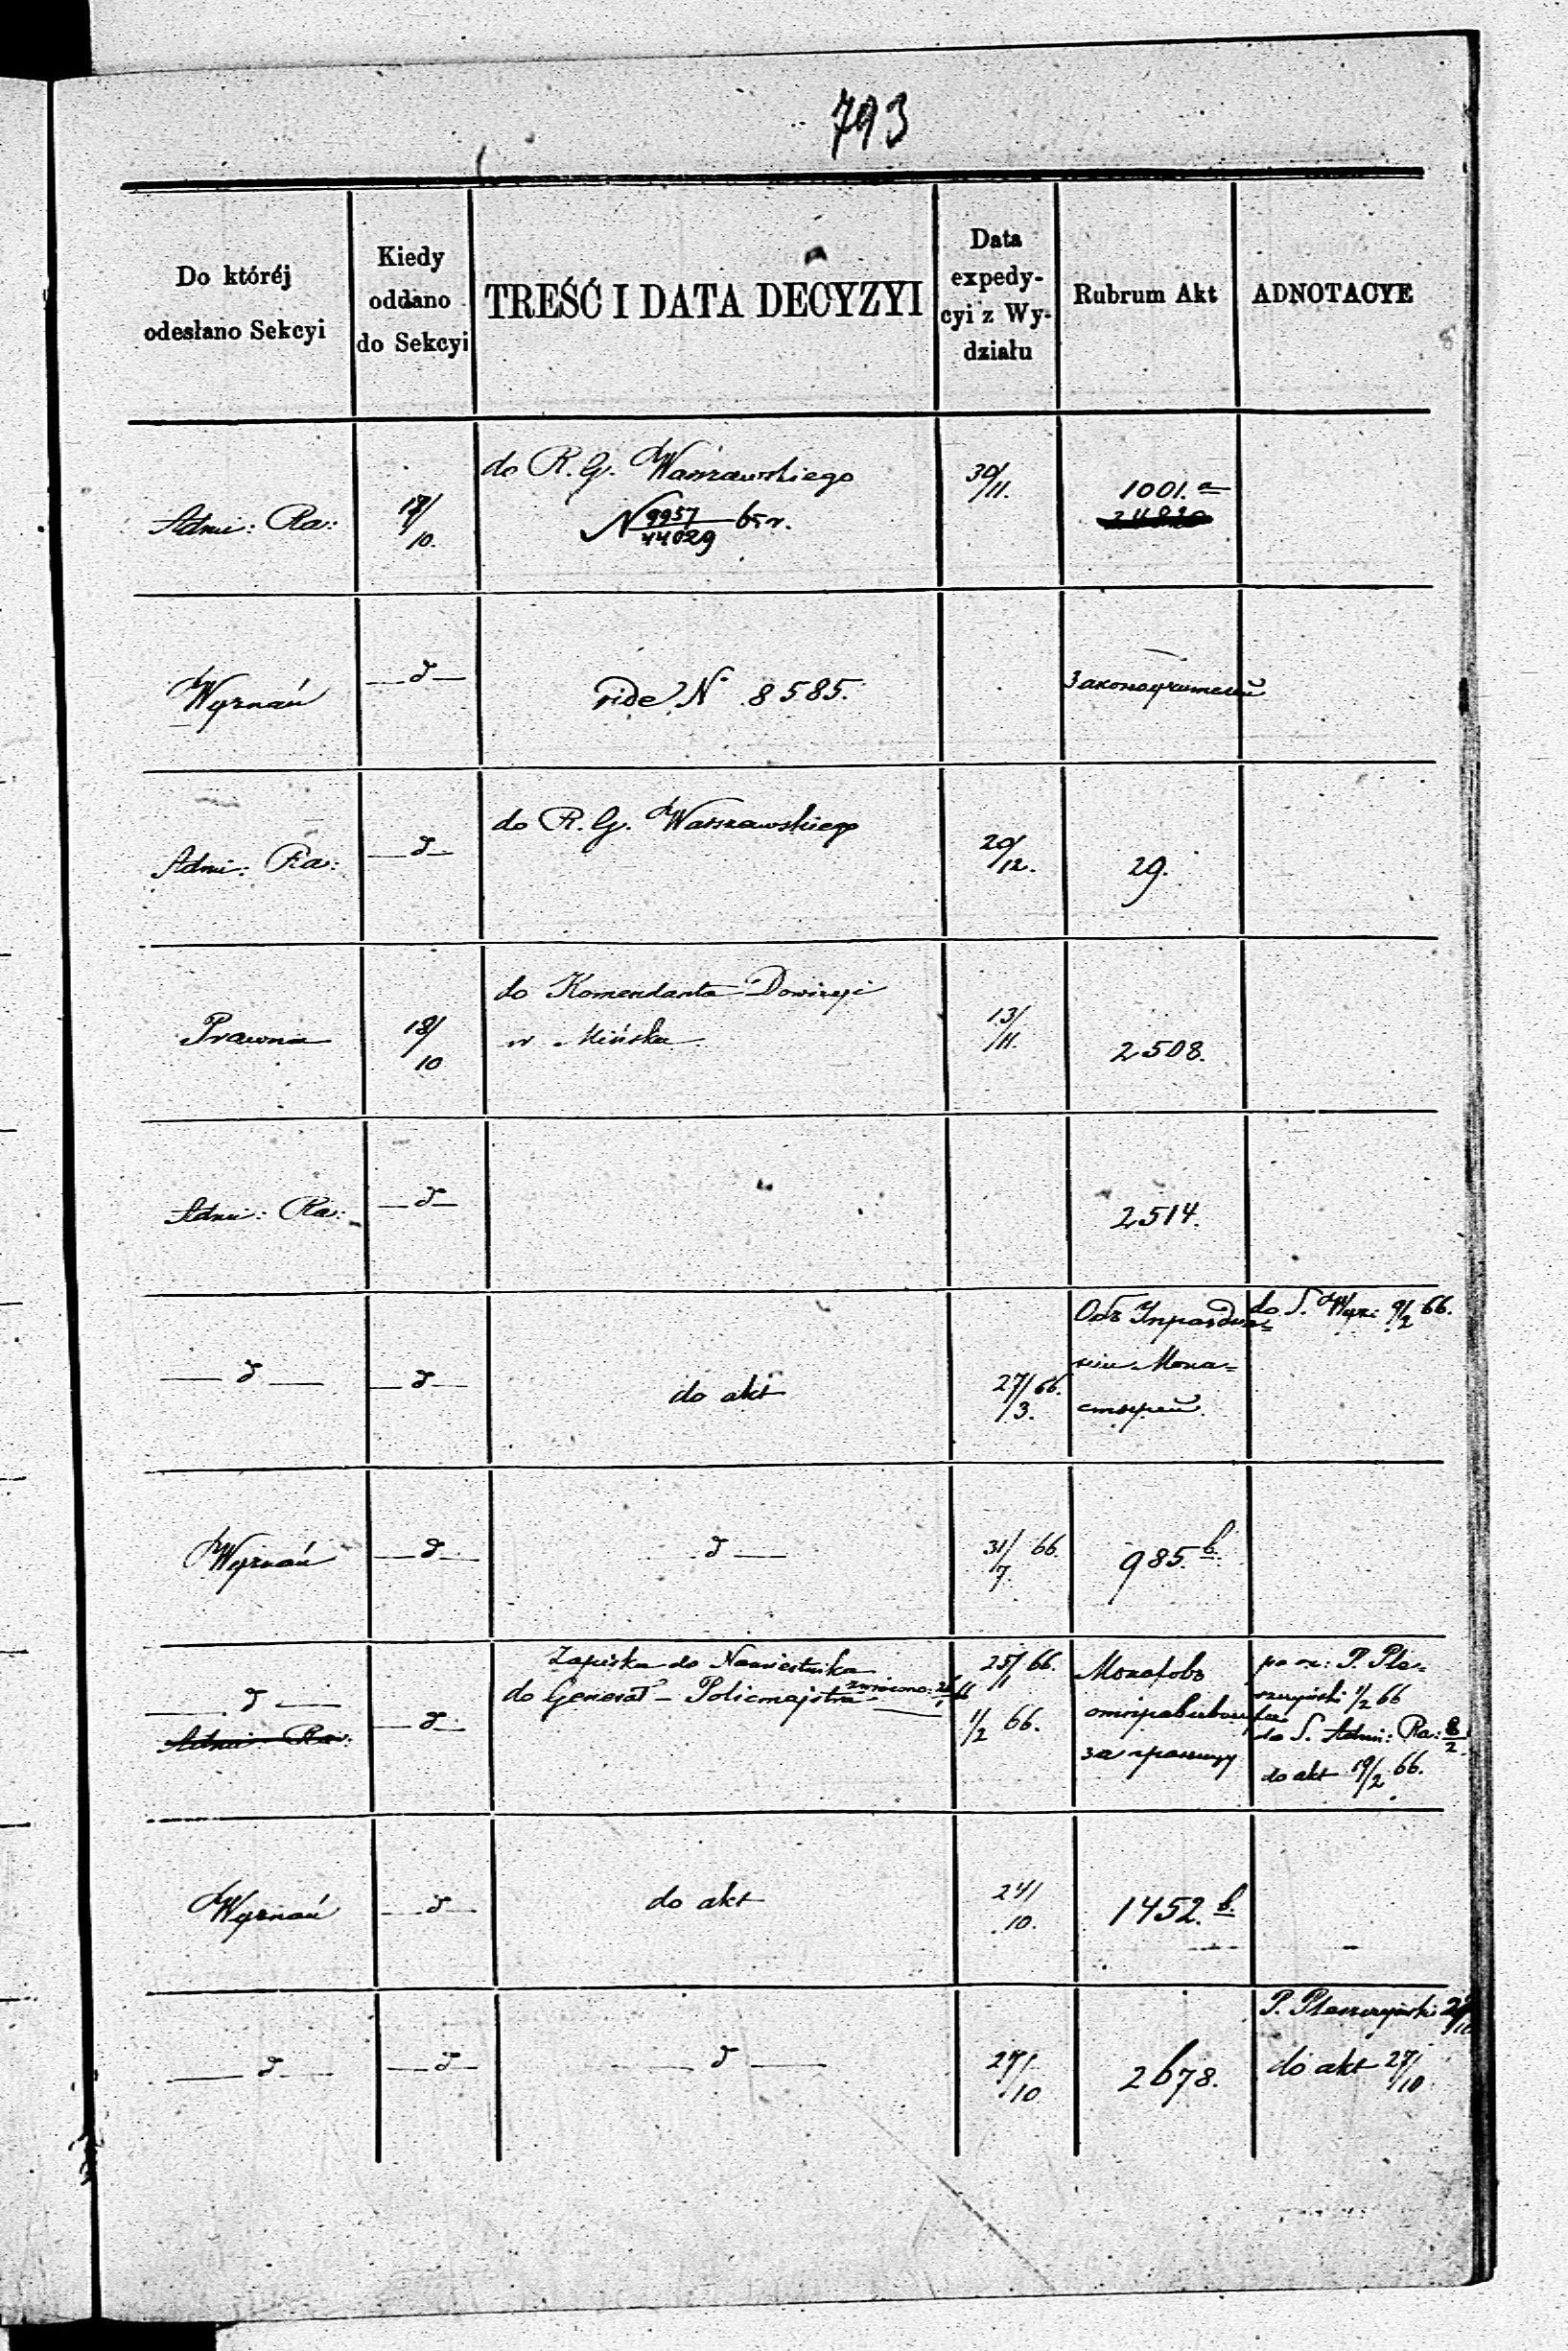 793
Do któréj
odesłano Sekcyi
Kiedy
oddano
do Sekcyi
TREŚĆ I DATA DECYZYI
Data
expedy-
cyi z Wy-
działu
Rubrum Akt
ADNOTACYE
Admi: Ra:
18/10.
do R. G. Warszawskiego
N 9957/44029 65 r.
30/11.
1001. a
Wyznań
— d —
vide N 8585.
Законоучителей
Admi: Ra:
— d —
do R. G. Warszawskiego
20/12.
29.
Prawna
18/10
do Komendanta Dowizyi
w Mińsku
13/11.
2508.
Admi: Ra:
— d —
2514.
— d —
— d —
do akt
27/3. 66.
Объ Упраздне=
нiи Мона=
стырей.
do S. Wyz: 9/2 66.
Wyznań
— d —
d —
31/7. 66.
985. b.
— d —
Admi: Ra:
— d —
Zapiska do Namiestnika
do Generał-Policmajstra zwrócono:
25/1 66.
1/2 66.
Монаховъ
отправивши
за границу
1/2 66
do S. Admi: Ra: 8/2.
do akt 19/2 66.
Wyznań
— d —
do akt
24/10.
1452. b.
— d —
— d —
— d —
27/10
2678.
P. Pleszczyński
do akt 27/10